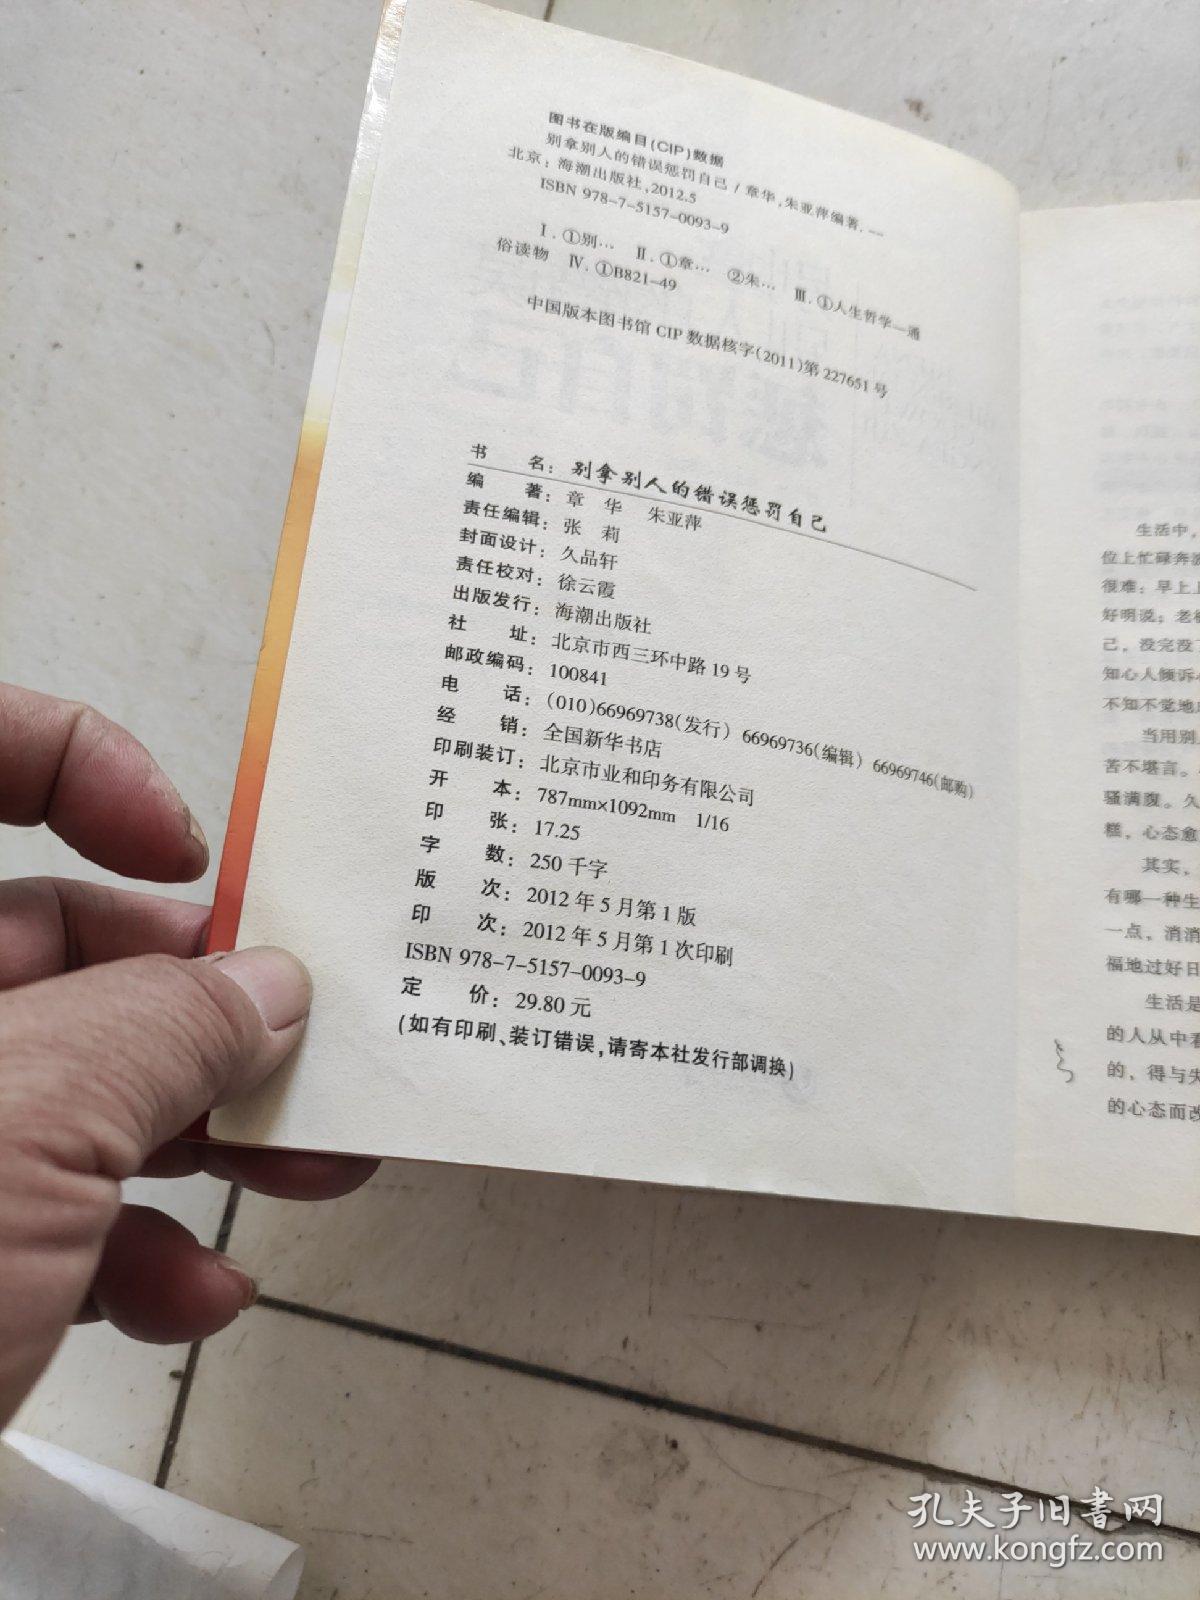 图书在版编目(CIP)数据
别拿别人的错误惩罚自己 / 章华,朱亚萍编著. —
北京：海潮出版社,2012.5
ISBN 978-7-5157-0093-9
Ⅰ. ①别… Ⅱ. ①章… ②朱… Ⅲ. ①人生哲学—通
俗读物 Ⅳ. ①B821-49
中国版本图书馆 CIP 数据核字(2011)第 227651 号
书 名：别拿别人的错误惩罚自己
编 著：章 华 朱亚萍
责任编辑：张 莉
封面设计：久品轩
责任校对：徐云霞
出版发行：海潮出版社
社 址：北京市西三环中路 19 号
邮政编码：100841
电 话：(010)66969738(发行) 66969736(编辑) 66969746(邮购)
经 销：全国新华书店
印刷装订：北京市业和印务有限公司
开 本：787mm×1092mm 1/16
印 张：17.25
字 数：250 千字
版 次：2012 年 5 月第 1 版
印 次：2012 年 5 月第 1 次印刷
ISBN 978-7-5157-0093-9
定 价：29.80 元
(如有印刷、装订错误,请寄本社发行部调换)
生活中，
位上忙碌奔波
很难：早上上
好明说；老
己，没完没
知心人倾诉
不知不觉地
当用别
苦不堪言。
骚满腹。久
糕，心态愈
其实，
有哪一种生
一点，消消
福地过好日
生活是
的人从中看
的、得与失
的心态而改
孔夫子旧书网
www.kongfz.com